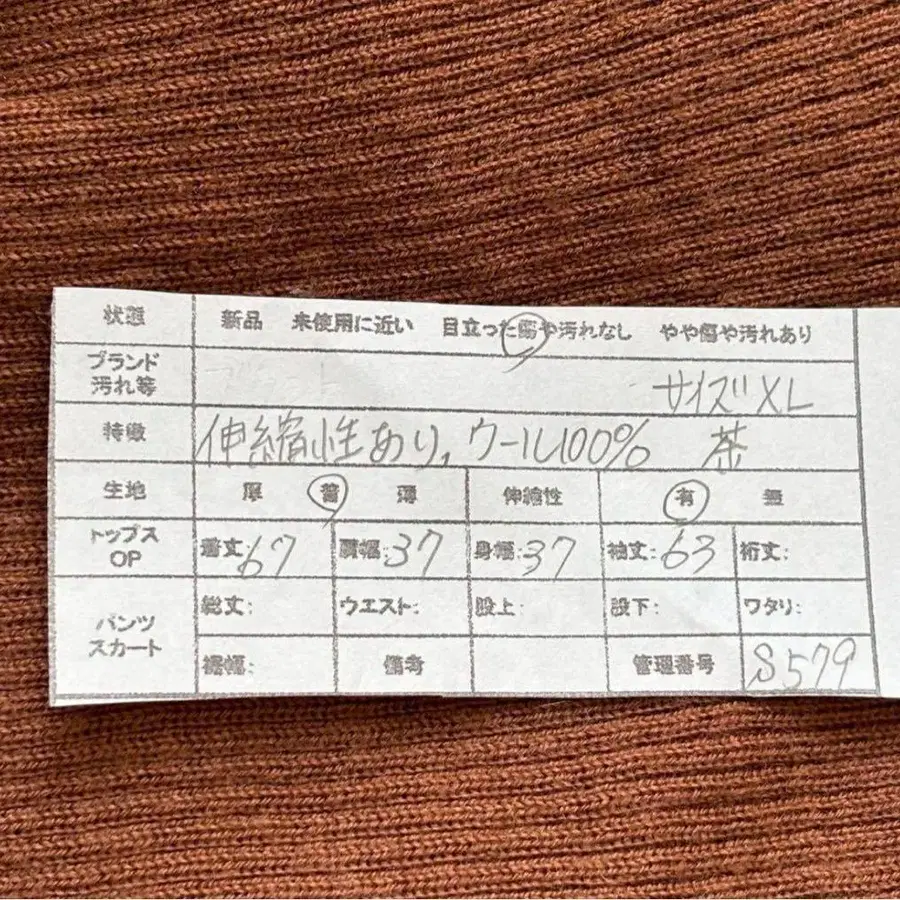 状態 新品 未使用に近い 目立った傷や汚れなし やや傷や汚れあり
ブランド
汚れ等 サイズXL
特徴 伸縮性あり、ウール100% 茶
生地 厚 普 薄 伸縮性 有 無
トップス
OP 着丈:67 肩幅:37 身幅:37 袖丈:63 裄丈:
パンツ
スカート 総丈: ウエスト: 股上: 股下: ワタリ:
裾幅: 備考 管理番号 S579